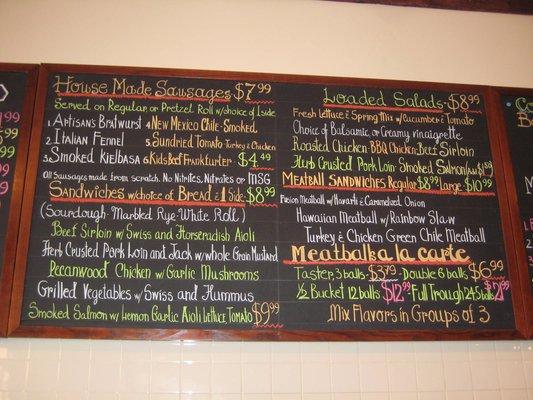 House Made Sausages $7.99
Served on Regular or Pretzel Roll w/choice of 1 side
1. Artisan's Bratwurst 4 New Mexico Chile-Smoked
2. Italian Fennel 5. Sundried Tomato-Turkey & Chicken
3. Smoked Kielbasa 6 Kids Beef Frankfurter $4.49
All Sausages made from scratch. No Nitrites, Nitrates or MSG
Sandwiches w/choice of Bread & 1 Side $8.99
(Sourdough-Marbled Rye-White Roll)
Beef Sirloin w/ Swiss and Horseradish Aioli
Herb Crusted Pork Loin and Jack w/ whole Grain Mustard
Pecanwood Chicken w/ Garlic Mushrooms
Grilled Vegetables w/ Swiss and Hummus
Smoked Salmon w/ Lemon Garlic Aioli Lettuce, Tomato $9.99
Loaded Salads-$8.99
Fresh Lettuce & Spring Mix w/Cucumber & Tomato
Choice of Balsamic or Creamy vinaigrette
Roasted Chicken-BBQ Chicken-Beef Sirloin
Herb Crusted Pork Loin-Smoked Salmon
Meatball Sandwiches Regular $8.99 Large $10.99
Fusion Meatball w/ Havarti & Caramelized Onion
Hawaiian Meatball w/ Rainbow Slaw
Turkey & Chicken Green Chile Meatball
Meatballs a la carte
Taster, 3 balls $3.79-Double 6 balls $6.99
½ Bucket 12 balls $12.99-Full Trough 24 balls
Mix Flavors in Groups of 3